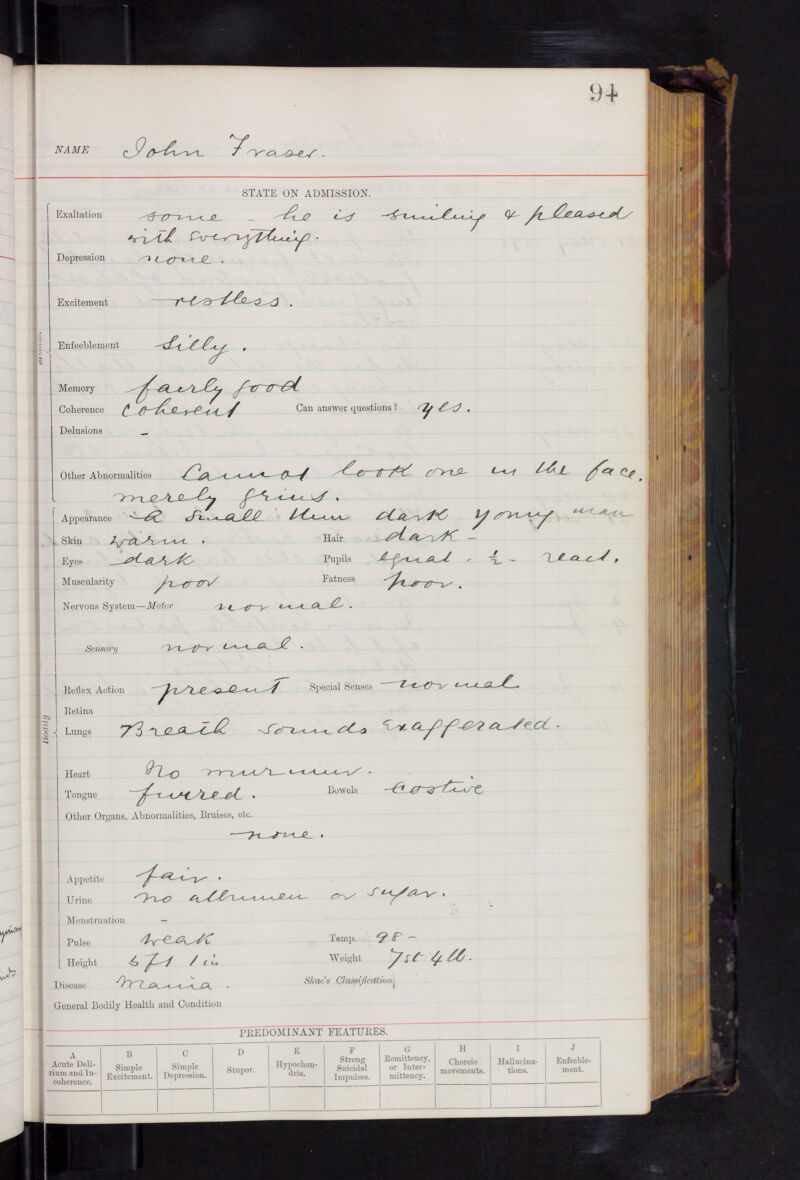 94
NAME John Fraser.
STATE ON ADMISSION.
Exaltation some - he is smiling & pleased
with everything.
Depression none.
Excitement restless.
Enfeeblement Silly.
Memory fairly good
Coherence coherent Can answer questions? yes.
Delusions -
Other Abnormalities Cannot look one in the face.
merely grins.
Appearance a small thin dark young man
Skin warm. Hair dark -
Eyes dark Pupils equal - ½ - react.
Muscularity poor Fatness poor.
Nervous System—Motor normal.
Sensory normal.
Reflex Action present Special Senses normal
Retina
Bodily
Lungs Breath sounds exaggerated.
Heart no murmur.
Tongue furred. Bowels costive
Other Organs, Abnormalities, Bruises, etc.
none.
Appetite fair.
Urine no albumen or sugar.
Menstruation -
Pulse weak Temp. 98 -
Height 5 ft 1 in Weight 7st 4 lb.
Disease Mania. Skae's Classification
General Bodily Health and Condition
PREDOMINANT FEATURES.
A B C D E F G H I J
Acute Delirium and Incoherence. Simple Excitement. Simple Depression. Stupor. Hypochondria. Strong Suicidal Impulses. Remittency, or Intermittency. Choreic movements. Hallucinations. Enfeeblement.